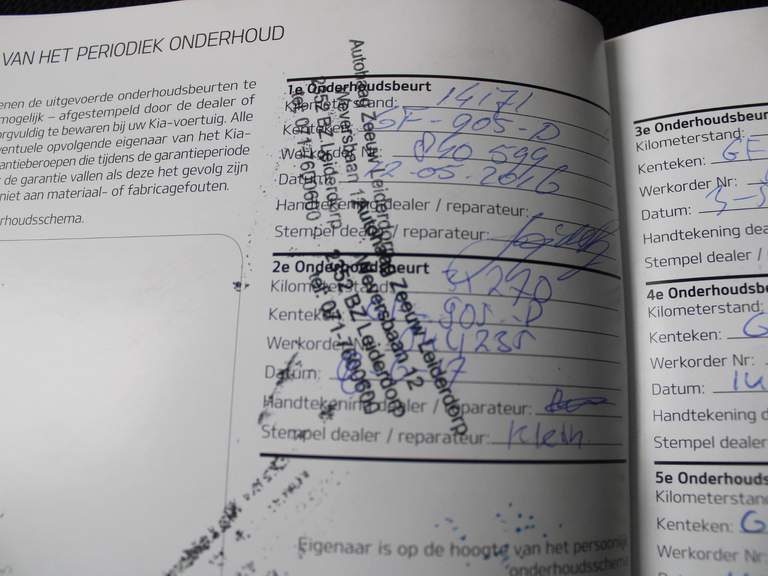 VAN HET PERIODIEK ONDERHOUD
enen de uitgevoerde onderhoudsbeurten te
mogelijk – afgestempeld door de dealer of
orgvuldig te bewaren bij uw Kia-voertuig. Alle
ventuele opvolgende eigenaar van het Kia-
antieberoepen die tijdens de garantieperiode
de garantie vallen als deze het gevolg zijn
niet aan materiaal- of fabricagefouten.
rhoudsschema.
1e Onderhoudsbeurt
Kilometerstand: 14171
Kenteken: GF-905-D
Werkorder Nr: 840 599
Datum: 12-05-2016
Handtekening dealer / reparateur:
Stempel dealer / reparateur:
Autohaag Zeeuw Leiderdorp
Meversbaan 12
2352 BZ Leiderdorp
tel. 071-7600600
2e Onderhoudsbeurt
Kilometerstand: 31270
Kenteken: GF-905-D
Werkorder Nr:
Datum:
Handtekening dealer / reparateur:
Stempel dealer / reparateur: Klein
Autohaag Zeeuw Leiderdorp
Meversbaan 12
2352 BZ Leiderdorp
tel. 071-7600600
Eigenaar is op de hoogte van het persoonlijk
onderhoudsschema
3e Onderhoudsbeur
Kilometerstand:
Kenteken: GF
Werkorder Nr:
Datum: 3-5
Handtekening dea
Stempel dealer /
4e Onderhoudsbe
Kilometerstand:
Kenteken: G
Werkorder Nr:
Datum: 14
Handtekening d
Stempel dealer
5e Onderhouds
Kilometerstan
Kenteken: G
Werkorder Nr: